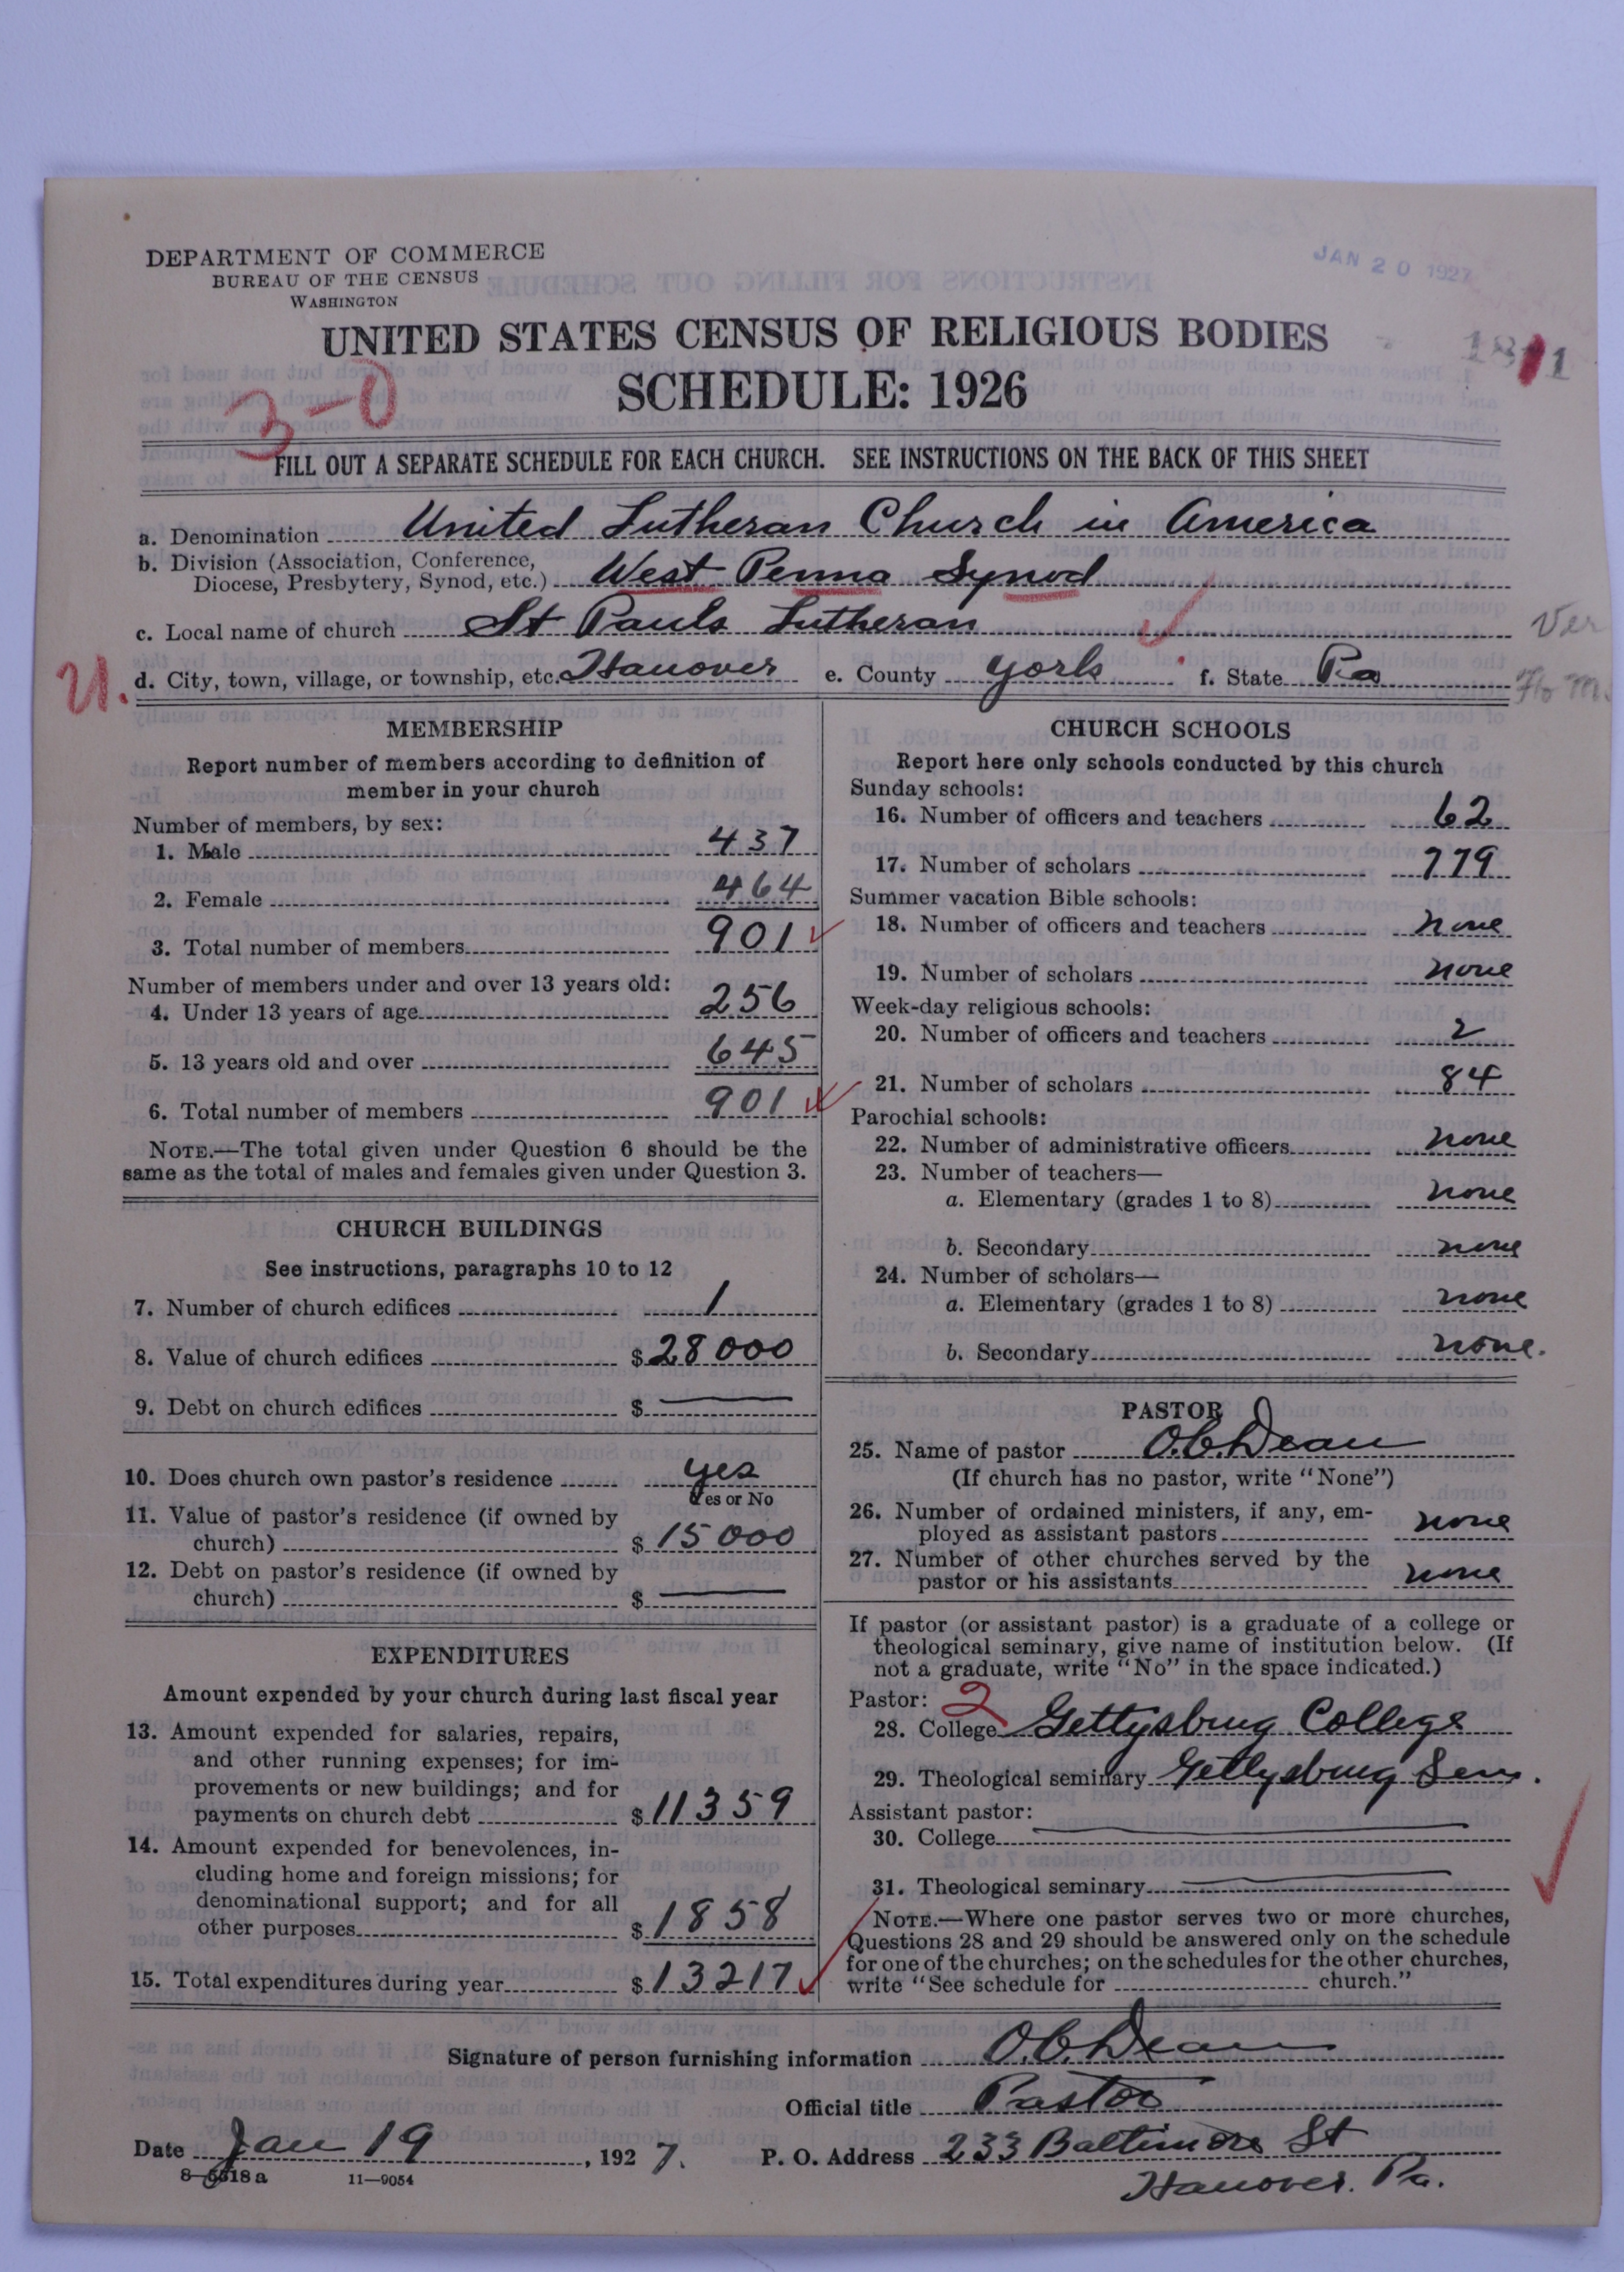 DEPARTMENT OF COMMERCE
BUREAU OF THE CENSUS
WASHINGTON
JAN 20 1927
UNITED STATES CENSUS OF RELIGIOUS BODIES
SCHEDULE: 1926
3-0
FILL OUT A SEPARATE SCHEDULE FOR EACH CHURCH. SEE INSTRUCTIONS ON THE BACK OF THIS SHEET
a. Denomination United Lutheran Church in America
b. Division (Association, Conference,
Diocese, Presbytery, Synod, etc.) West Penna Synod
c. Local name of church St Pauls Lutheran
Ver
U.
d. City, town, village, or township, etc. Hanover e. County York f. State Pa
MEMBERSHIP
Report number of members according to definition of
member in your church
Number of members, by sex:
1. Male 437
2. Female 464
3. Total number of members 901
Number of members under and over 13 years old:
4. Under 13 years of age 256
5. 13 years old and over 645
6. Total number of members 901
NOTE.—The total given under Question 6 should be the
same as the total of males and females given under Question 3.
CHURCH BUILDINGS
See instructions, paragraphs 10 to 12
7. Number of church edifices 1
8. Value of church edifices $28000
9. Debt on church edifices $ —
10. Does church own pastor's residence yes
Yes or No
11. Value of pastor's residence (if owned by
church) $15000
12. Debt on pastor's residence (if owned by
church) $ —
EXPENDITURES
Amount expended by your church during last fiscal year
13. Amount expended for salaries, repairs,
and other running expenses; for im-
provements or new buildings; and for
payments on church debt $11359
14. Amount expended for benevolences, in-
cluding home and foreign missions; for
denominational support; and for all
other purposes $1858
15. Total expenditures during year $13217
CHURCH SCHOOLS
Report here only schools conducted by this church
Sunday schools:
16. Number of officers and teachers 62
17. Number of scholars 779
Summer vacation Bible schools:
18. Number of officers and teachers none
19. Number of scholars none
Week-day religious schools:
20. Number of officers and teachers 2
21. Number of scholars 84
Parochial schools:
22. Number of administrative officers none
23. Number of teachers—
a. Elementary (grades 1 to 8) none
b. Secondary none
24. Number of scholars—
a. Elementary (grades 1 to 8) none
b. Secondary none.
PASTOR
25. Name of pastor O.C. Dean
(If church has no pastor, write "None")
26. Number of ordained ministers, if any, em-
ployed as assistant pastors none
27. Number of other churches served by the
pastor or his assistants none
If pastor (or assistant pastor) is a graduate of a college or
theological seminary, give name of institution below. (If
not a graduate, write "No" in the space indicated.)
Pastor: 2
28. College Gettysburg College
29. Theological seminary Gettysburg Sem.
Assistant pastor:
30. College —
31. Theological seminary —
NOTE.—Where one pastor serves two or more churches,
Questions 28 and 29 should be answered only on the schedule
for one of the churches; on the schedules for the other churches,
write "See schedule for church."
Signature of person furnishing information O.C. Dean
Official title Pastor
Date Jan 19, 1927. P. O. Address 233 Baltimore St
Hanover. Pa.
8—5518a 11—9054